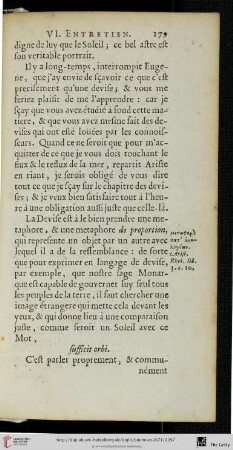 VI. ENTRETIEN. 179
digne de luy que le Soleil; ce bel astre est
son veritable portrait.
Il y a long-temps, interrompit Euge-
ne, que j'ay envie de sçavoir ce que c'est
precisément qu'une devise; & vous me
feriez plaisir de me l'apprendre: car je
sçay que vous avez étudié à fond cette ma-
tiere, & que vous avez mesme fait des de-
vises qui ont esté loüées par les connois-
seurs. Quand ce ne seroit que pour m'ac-
quitter de ce que je vous dois touchant le
flux & le reflux de la mer, repartit Ariste
en riant, je serois obligé de vous dire
tout ce que je sçay sur le chapitre des devi-
ses; & je veux bien satisfaire tout à l'heu-
re à une obligation aussi juste que celle-là.
La Devise est à le bien prendre une me-
taphore, & une metaphore de proportion,
qui represente un objet par un autre avec
lequel il a de la ressemblance: de sorte
que pour exprimer en langage de devise,
par exemple, que nostre sage Monar-
que est capable de gouverner suy seul tous
les peuples de la terre, il faut chercher une
image étrangere qui mette cela devant les
yeux, & qui donne lieu à une comparaison
juste, comme seroit un Soleil avec ce
Mot,
sufficit orbi.
C'est parler proprement, & commu-
nément
Arist.
Rhet. lib.
3. c. 10.